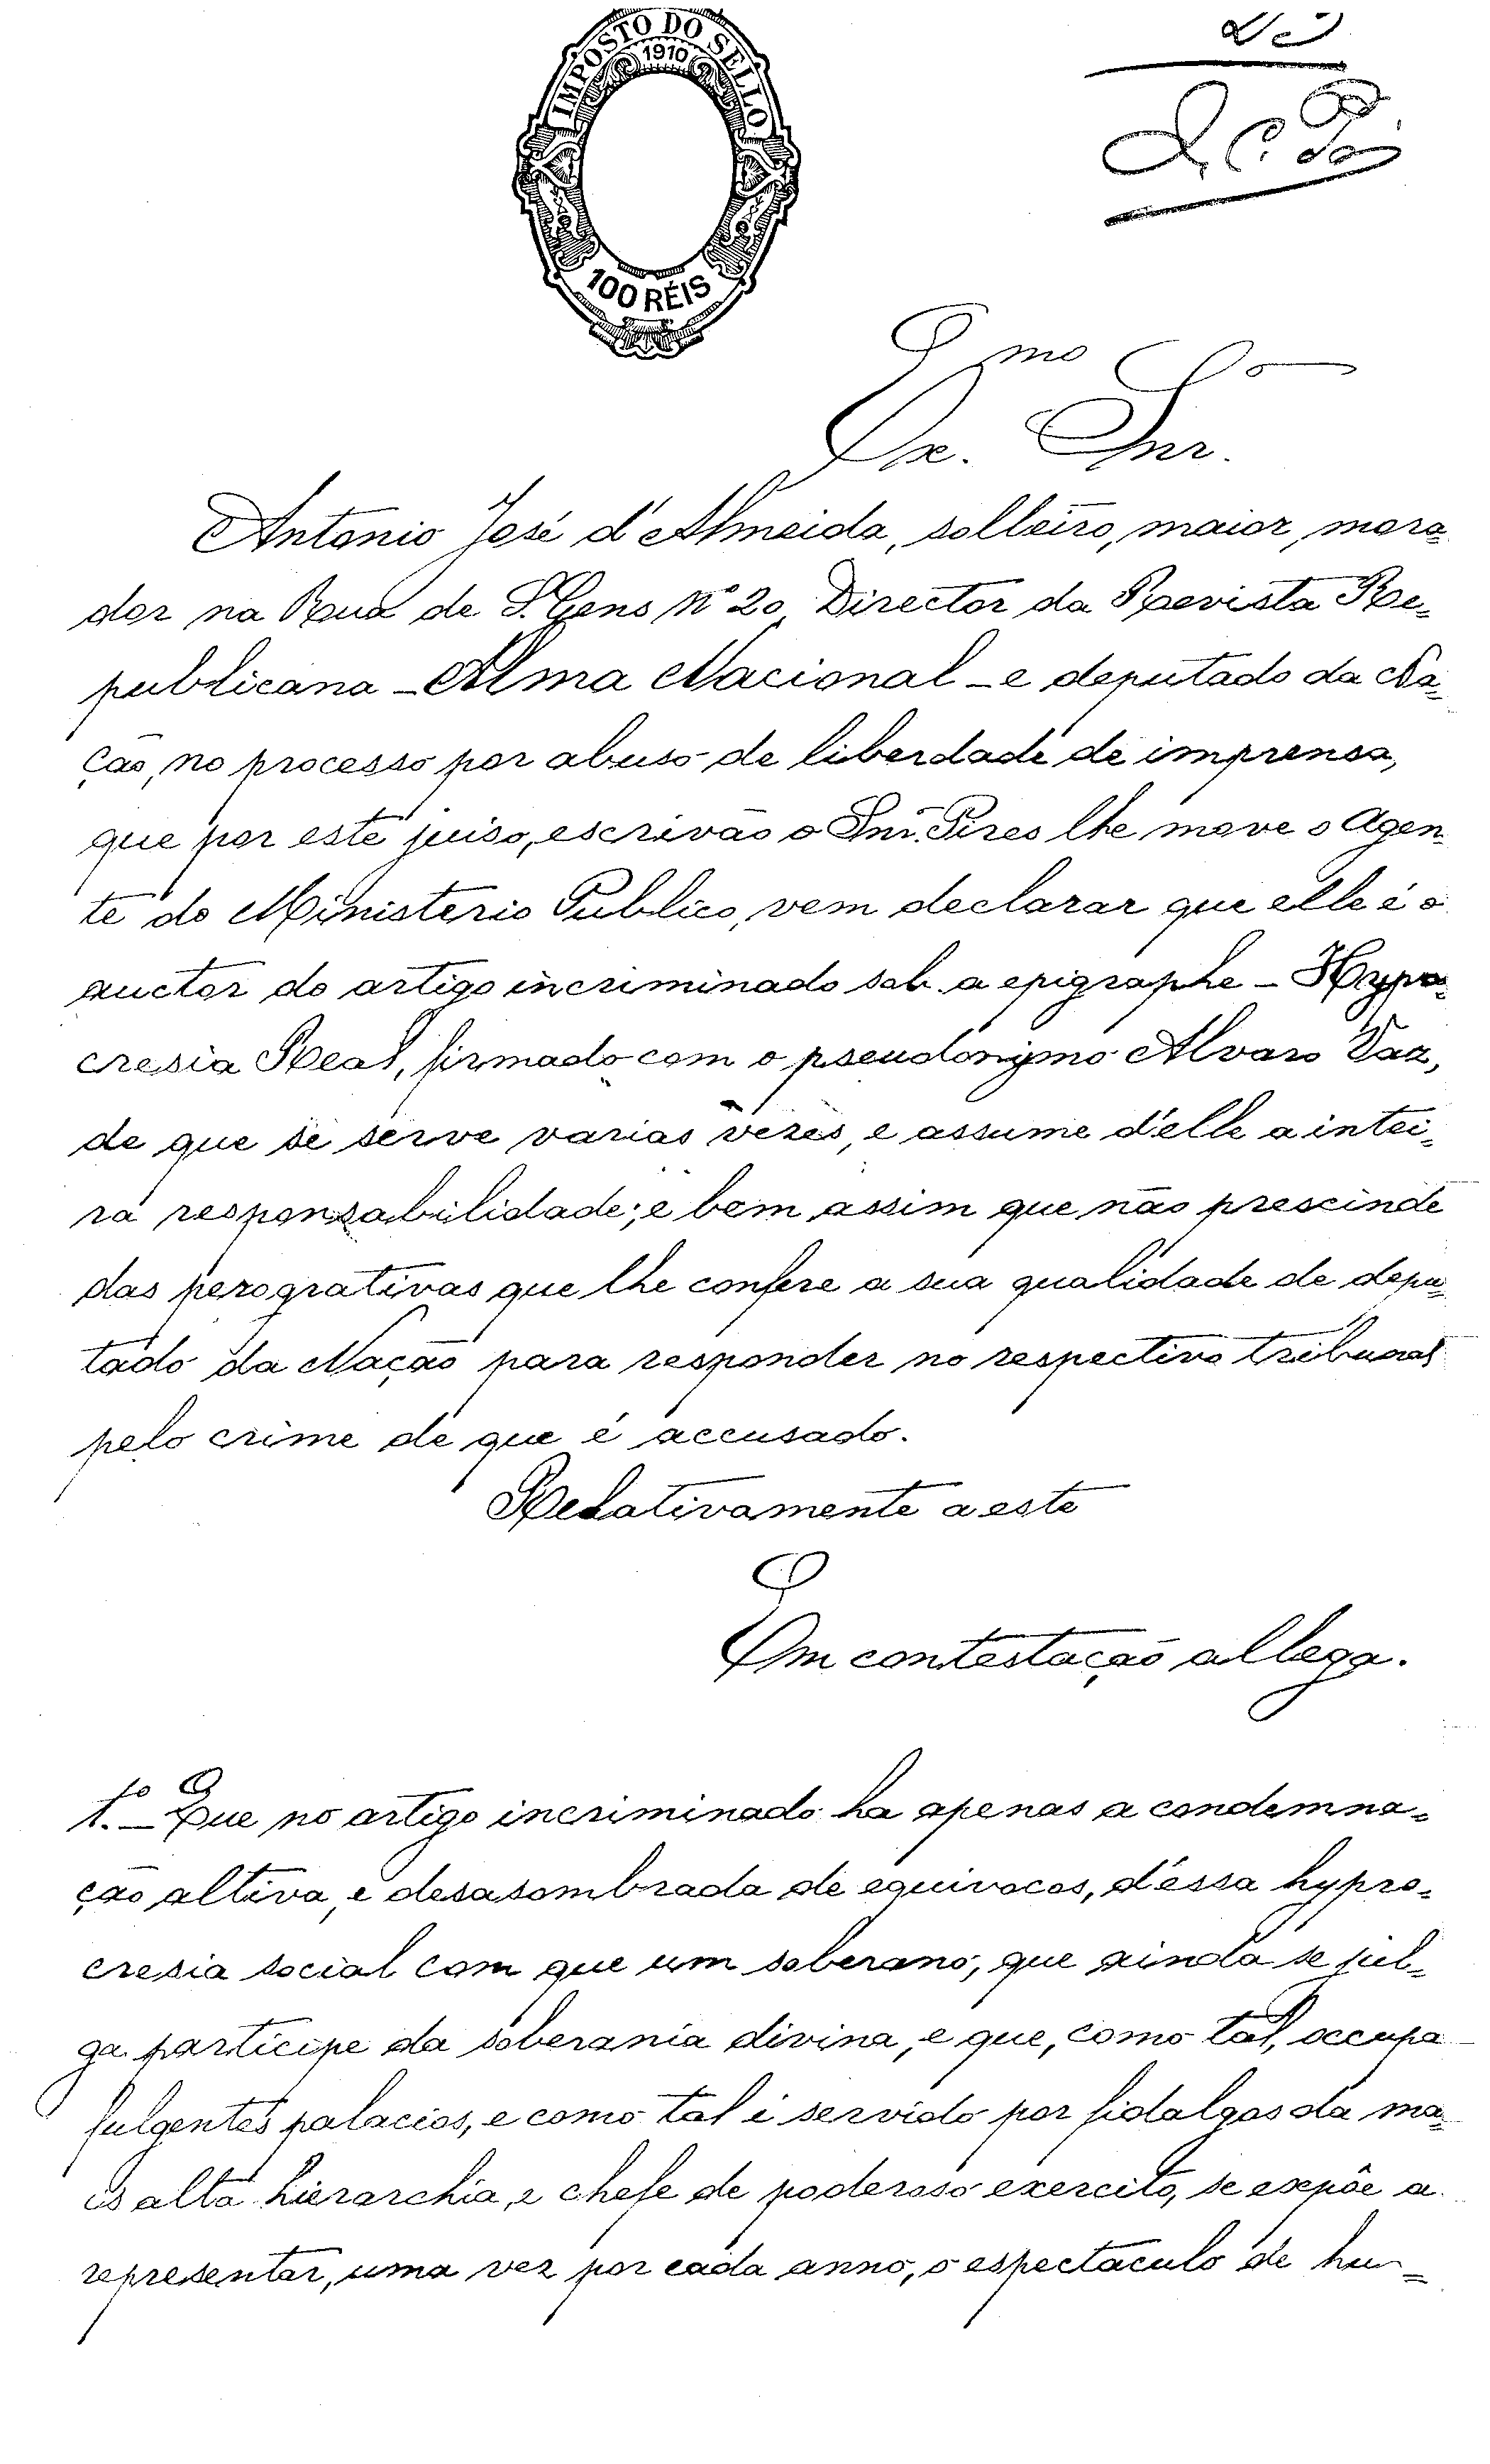 IMPOSTO DO SELLO
1910
100 RÉIS
Ex.mo Snr.
Antonio José d'Almeida, solteiro, maior, mora-
dor na Rua de S. Gens Nº 20, Director da Revista Re-
publicana - Alma Nacional - e deputado da Na-
ção, no processo por abuso de liberdade de imprensa,
que por este juiso, escrivão o Snr. Pires lhe move o Agen-
te do Ministerio Publico, vem declarar que elle é o
auctor do artigo incriminado sob a epigraphe - Hypo-
cresia Real, firmado com o pseudonymo Alvaro Vaz,
de que se serve varias vezes, e assume d'elle a intei-
ra responsabilidade; e bem assim que não prescinde
das perogrativas que lhe confere a sua qualidade de depu-
tado da Nação para responder no respectivo tribunal
pelo crime de que é accusado.
Relativamente a este
Em contestação allega.
1.º - Que no artigo incriminado ha apenas a condemna-
ção altiva, e desasombrada de equivocos, d'éssa hypro-
cresia social com que um soberano, que ainda se jul-
ga participe da soberania divina, e que, como tal, occupa
fulgentes palacios, e como tal é servido por fidalgos da ma-
is alta hierarchia, e chefe de poderoso exercito, se expôe a
representar, uma vez por cada anno, o espectaculo de hu-